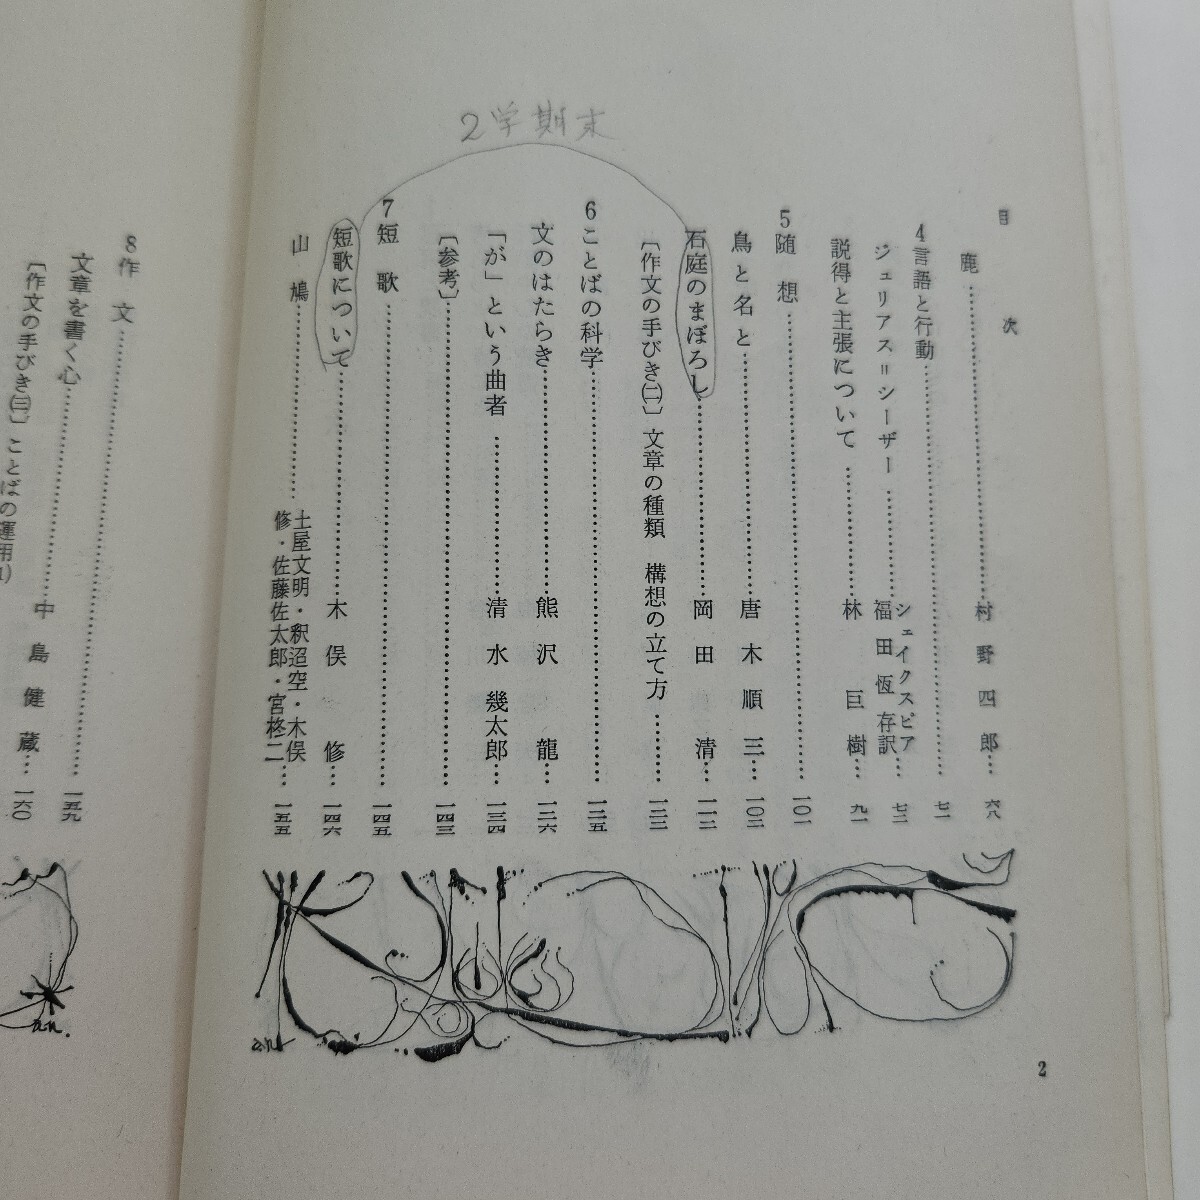 2学期末
目次
鹿……村野四郎…六八
4 言語と行動……七一
ジュリアス＝シーザー……シェイクスピア 福田恆存訳…七二
説得と主張について……林巨樹…九一
5 随想……一〇一
鳥と名と……唐木順三…一〇二
石庭のまぼろし……岡田清…一一二
〔作文の手びき(二)〕文章の種類 構想の立て方……一二三
6 ことばの科学……一二五
文のはたらき……熊沢龍…一二六
「が」という曲者……清水幾太郎…一三四
〔参考〕……一四三
7 短歌……一四五
短歌について……木俣修…一四六
山鳩……土屋文明・釈迢空・木俣修・佐藤佐太郎・宮柊二…一五五
2
8 作文……一五九
文章を書く心……中島健蔵…一六〇
〔作文の手びき(三)〕ことばの運用